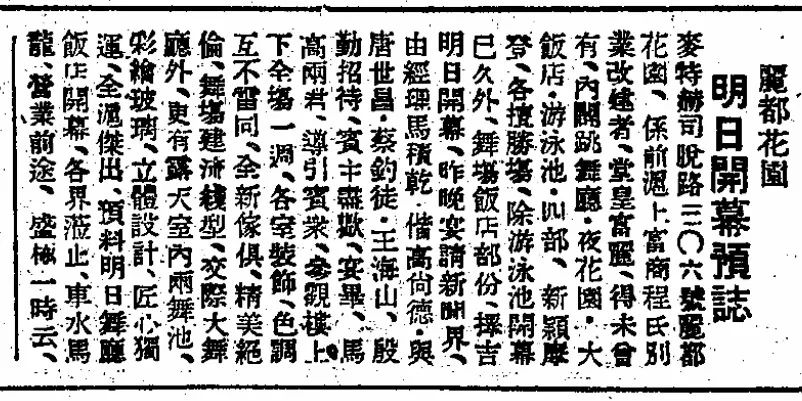 麗都花園
明日開幕預誌
麥特赫司脫路三〇六號麗都
花園、係前滬上富商程氏別
業改建者、堂皇富麗、得未曾
有、內闢跳舞廳·夜花園·大
飯店·游泳池·四部、新穎摩
登、各擅勝場、除游泳池開幕
已久外、舞場飯店部份、擇吉
明日開幕、昨晚宴請新聞界、
由經理馬積乾·偕高尚德·與
唐世昌·蔡釣徒·王海山、殷
勤招待、賓主盡歡、宴畢、馬
高兩君、導引賓衆、參觀樓上
下全場一週、各室裝飾、色調
互不雷同、全新傢俱、精美絕
倫、舞場建流綫型、交際大舞
廳外、更有露天室內兩舞池、
彩繪玻璃、立體設計、匠心獨
運、全滬傑出、預料明日舞廳
飯店開幕、各界蒞止、車水馬
龍、營業前途、盛極一時云、